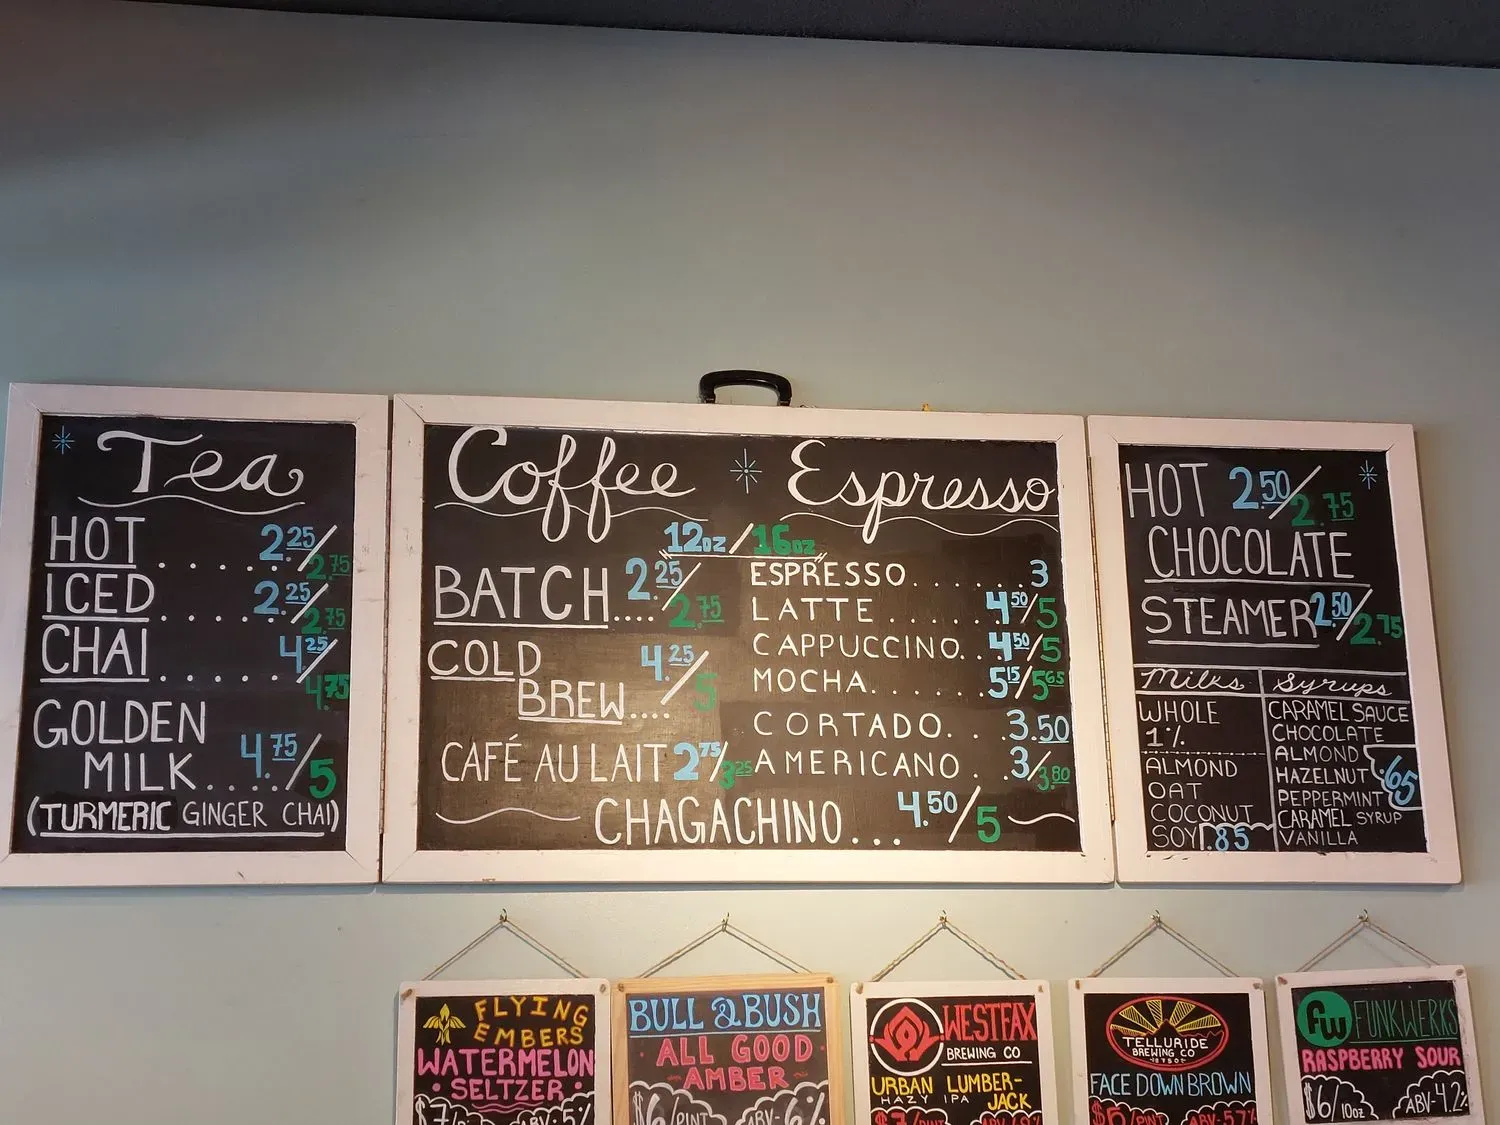 Tea
HOT...... 2.25/2.75
ICED..... 2.25/2.75
CHAI..... 4.25/4.75
GOLDEN
MILK.... 4.75/5
(TURMERIC GINGER CHAI)
Coffee Espresso
12oz/16oz
BATCH.... 2.25/2.75
COLD
BREW.... 4.25/5
CAFÉ AU LAIT 2.75/3.25
ESPRESSO...... 3
LATTE...... 4.50/5
CAPPUCCINO.. 4.50/5
MOCHA...... 5.15/5.65
CORTADO.. 3.50
AMERICANO.. 3/3.80
CHAGACHINO... 4.50/5
HOT 2.50/2.75
CHOCOLATE
STEAMER 2.50/2.75
Milks
WHOLE
1%
ALMOND
OAT
COCONUT
SOY .85
Syrups
CARAMEL SAUCE
CHOCOLATE
ALMOND
HAZELNUT .65
PEPPERMINT
CARAMEL SYRUP
VANILLA
FLYING
EMBERS
WATERMELON
SELTZER
ABV-5%
BULL & BUSH
ALL GOOD
AMBER
$6/PINT ABV-6%
WESTFAX
BREWING CO
URBAN LUMBER-
HAZY IPA JACK
$7/PINT
TELLURIDE
BREWING CO
8750'
FACE DOWN BROWN
$6/PINT ABV-5.7%
FW FUNKWERKS
RASPBERRY SOUR
$6/10oz ABV-4.2%